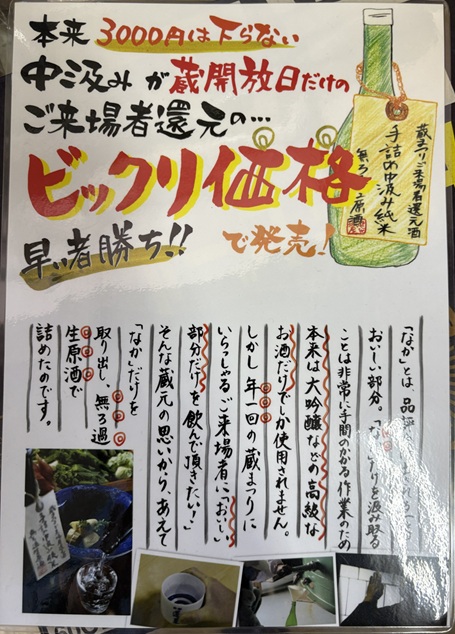 本来 3000円は下らない
中汲み が 蔵開放日だけの
ご来場者還元の…
ビックリ価格
早い者勝ち!! で発売!
蔵まつりご来場者還元酒
手詰め中汲み純米
無ろ 原酒
「なか」とは、品評
おいしい部分。 だけを汲み取る
ことは非常に手間のかかる作業のため
本来は大吟醸などの高級な
お酒だけでしか使用されません。
しかし年一回の蔵まつりに
いらっしゃるご来場者に「おいしい
部分だけを飲んで頂きたい!」
そんな蔵元の思いから、あえて
「なか」だけを
取り出し、無ろ過
生原酒で
詰めたのです。